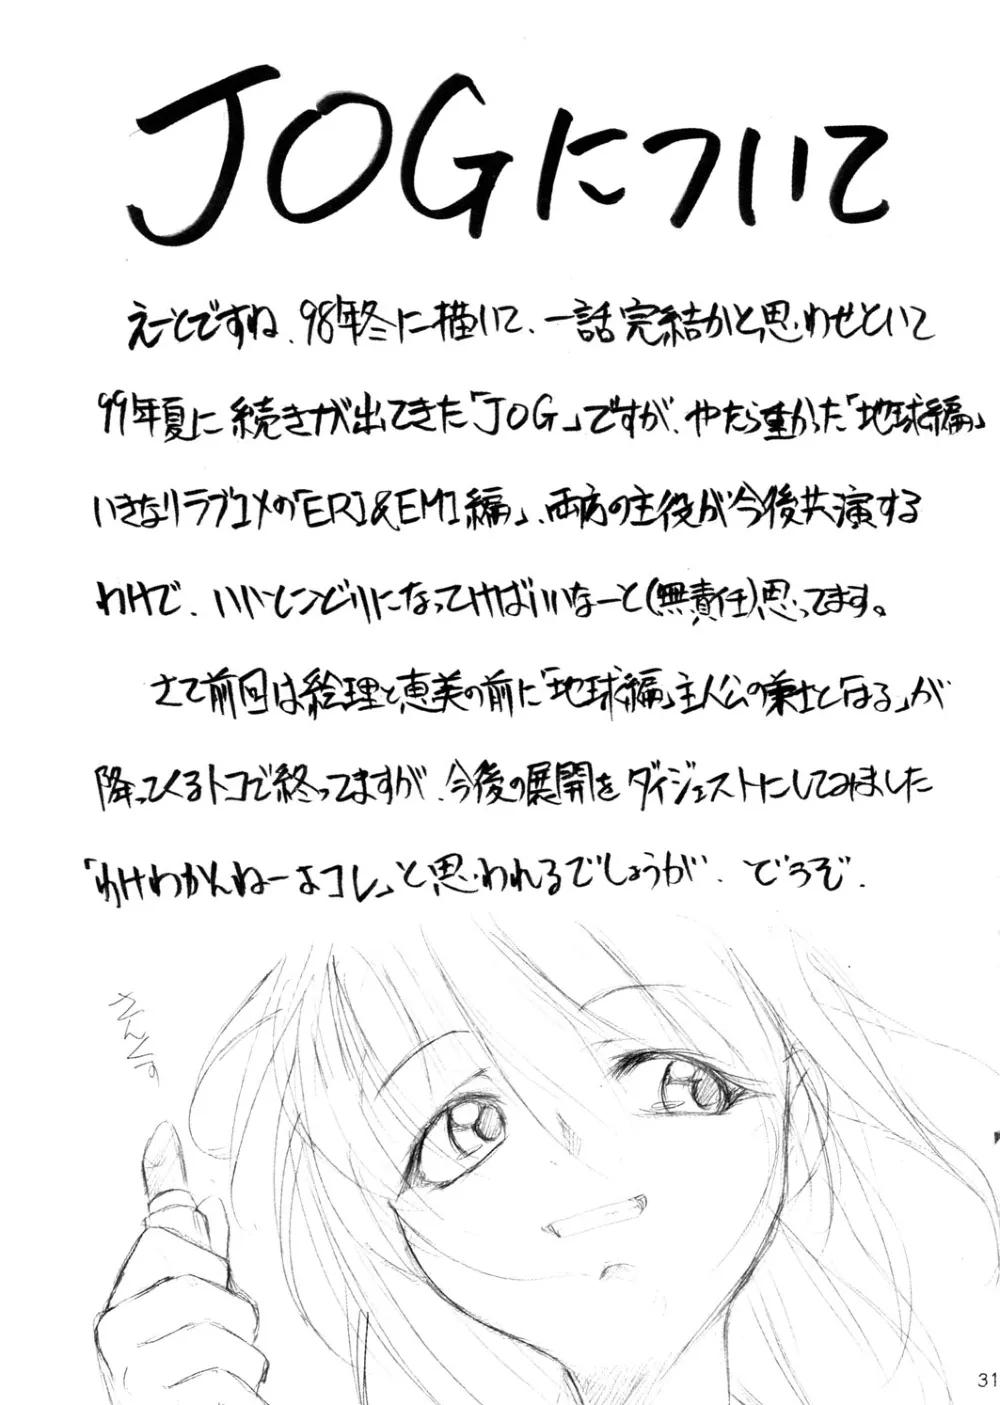 JOGについて
えーとですね、98年冬に描いて、一話完結かと思わせといて
99年夏に続きが出てきた「JOG」ですが、やたら重かった「地球編」
いきなりラブコメの「ERI&EMI編」、両方の主役が今後共演する
わけで、いいとこどりになってけばいいなーと(無責任)思ってます。
さて前回は絵理と恵美の前に「地球編」主人公の兼士と「はる」が
降ってくるトコで終ってますが、今後の展開をダイジェストにしてみました
「わけわかんねーよコレ」と思われるでしょうが、どうぞ.
さんくす
31